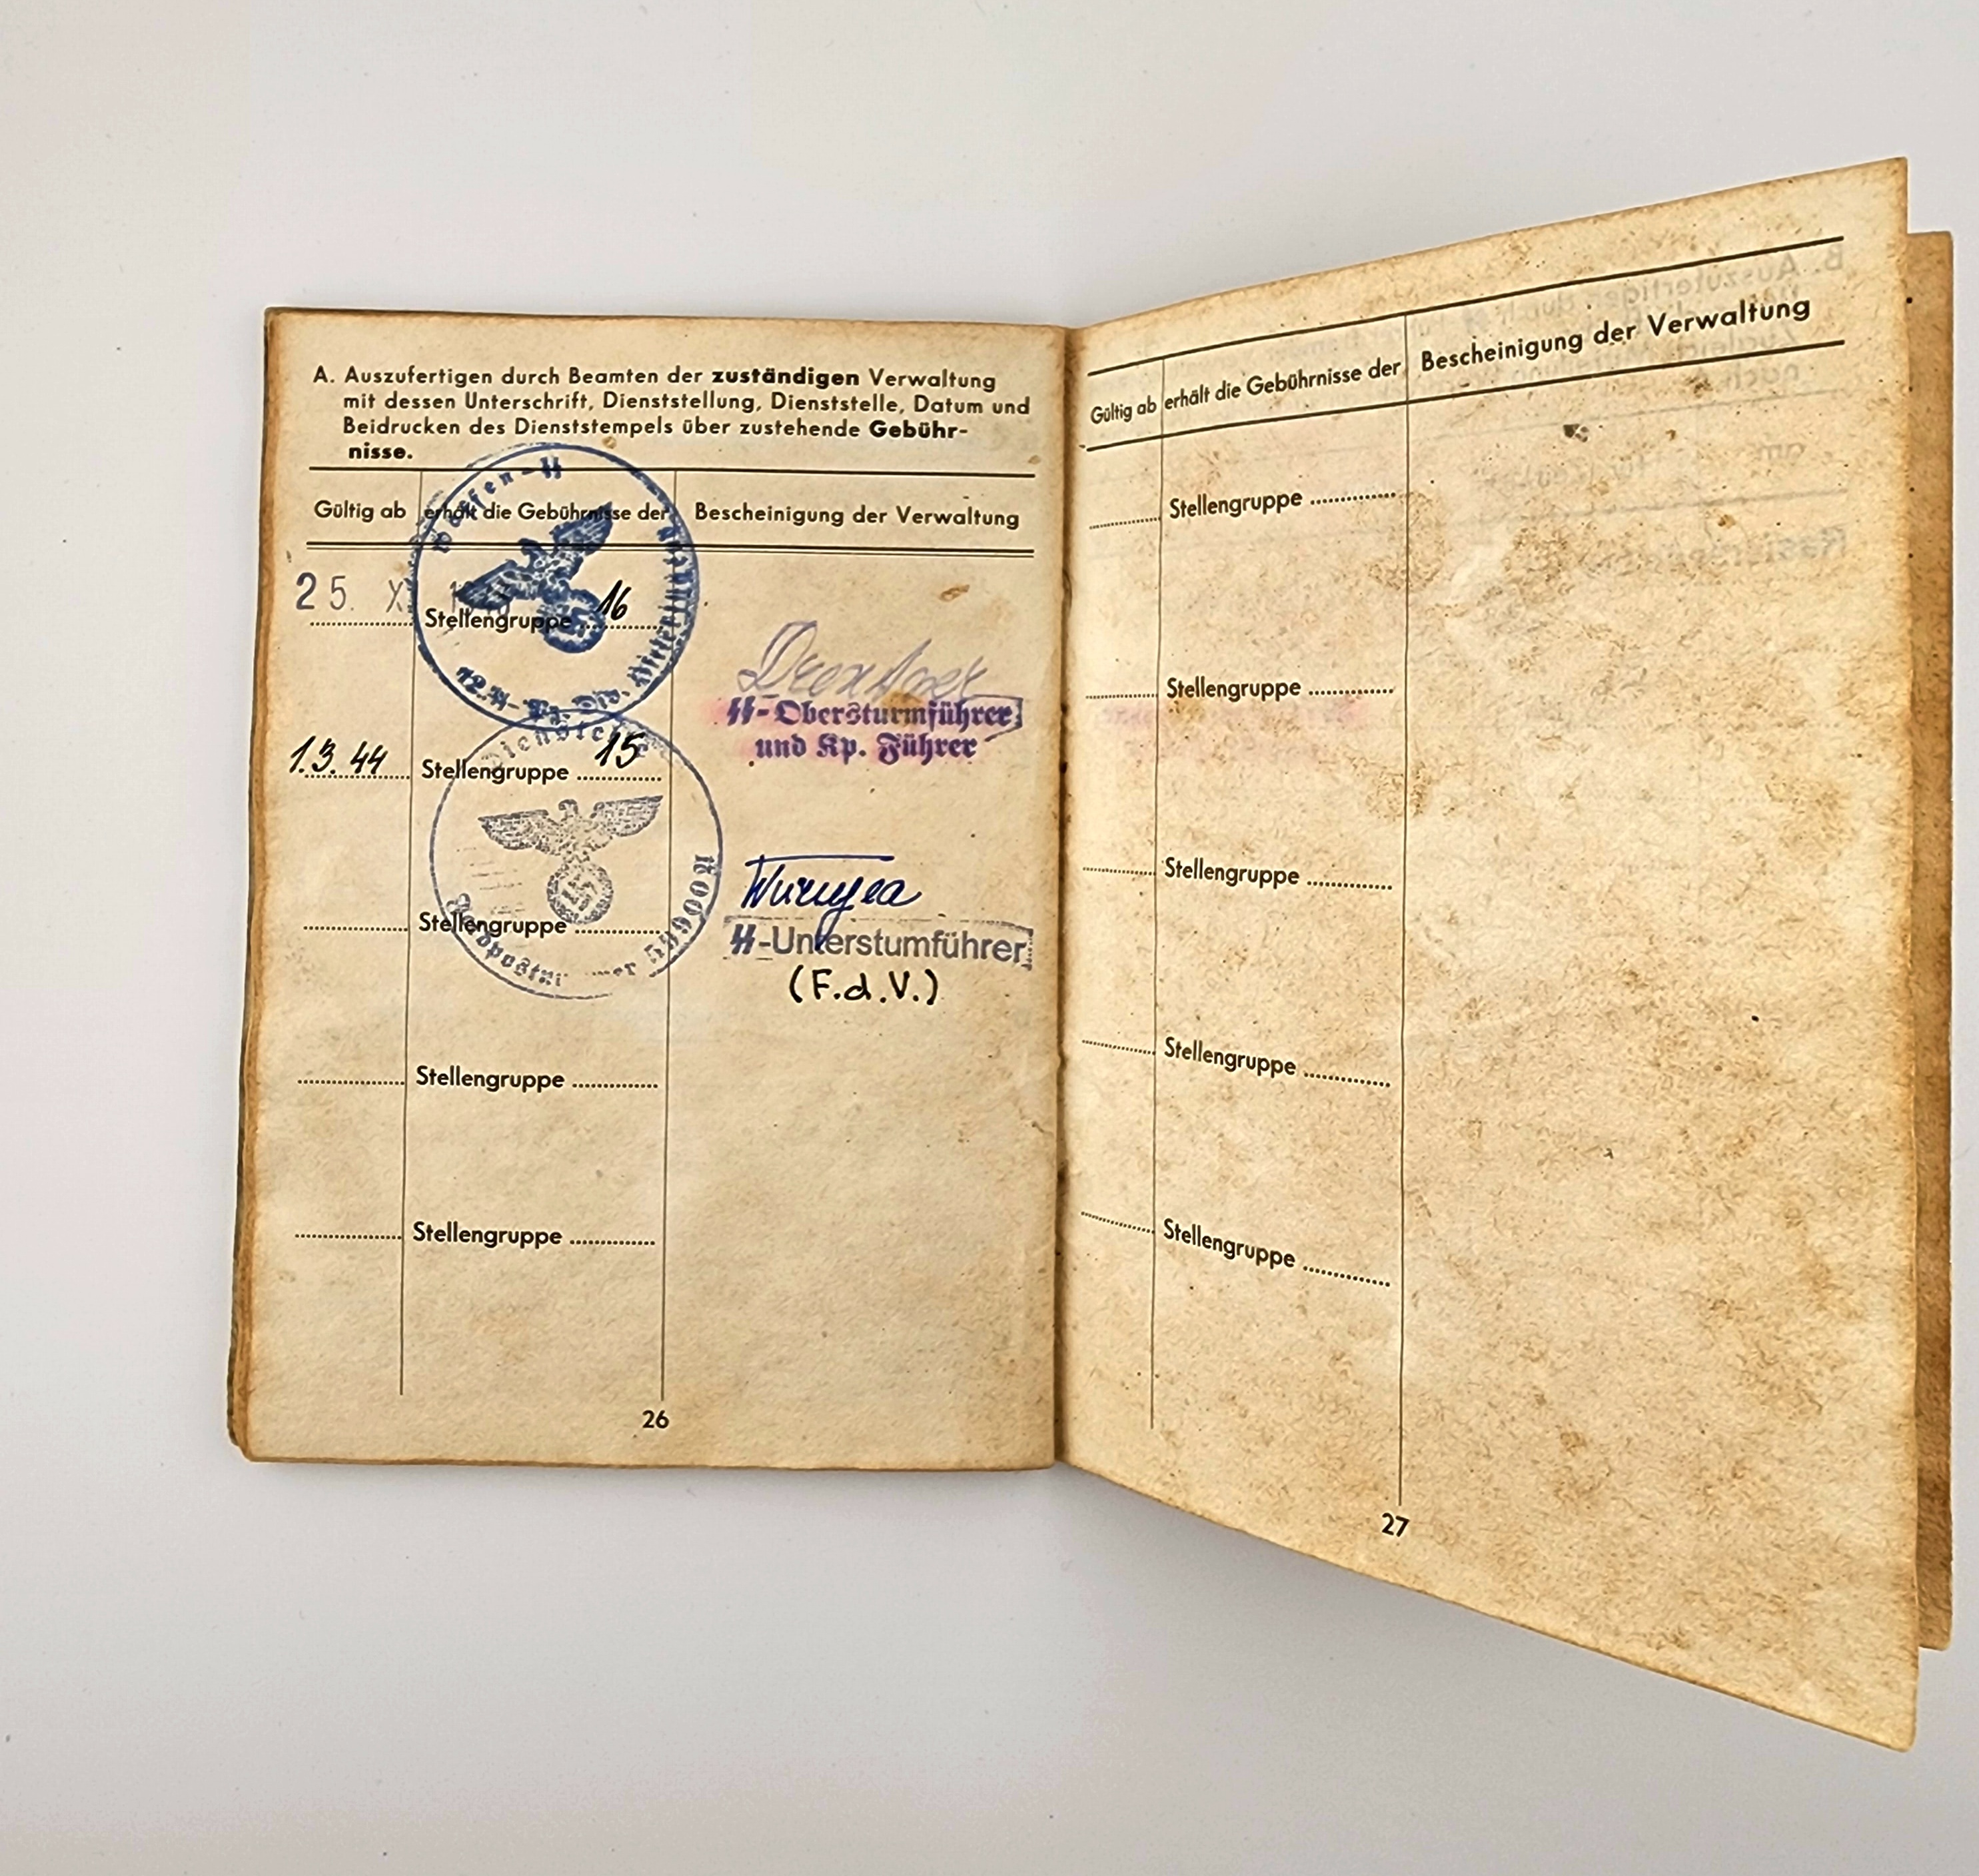 A. Auszufertigen durch Beamten der zuständigen Verwaltung
mit dessen Unterschrift, Dienststellung, Dienststelle, Datum und
Beidrucken des Dienststempels über zustehende Gebühr-
nisse.
Gültig ab erhält die Gebührnisse der Bescheinigung der Verwaltung
Waffen-SS
12. SS-Pz. Div. Hitlerjugend
25. X
Stellengruppe 16
SS-Obersturmführer
und Kp. Führer
Dienststelle
1.3.44 Stellengruppe 15
Feldpostnummer
Stellengruppe
SS-Unterstumführer
(F.d.V.)
Stellengruppe
Stellengruppe
26
Gültig ab erhält die Gebührnisse der Bescheinigung der Verwaltung
Stellengruppe
Stellengruppe
Stellengruppe
Stellengruppe
Stellengruppe
27